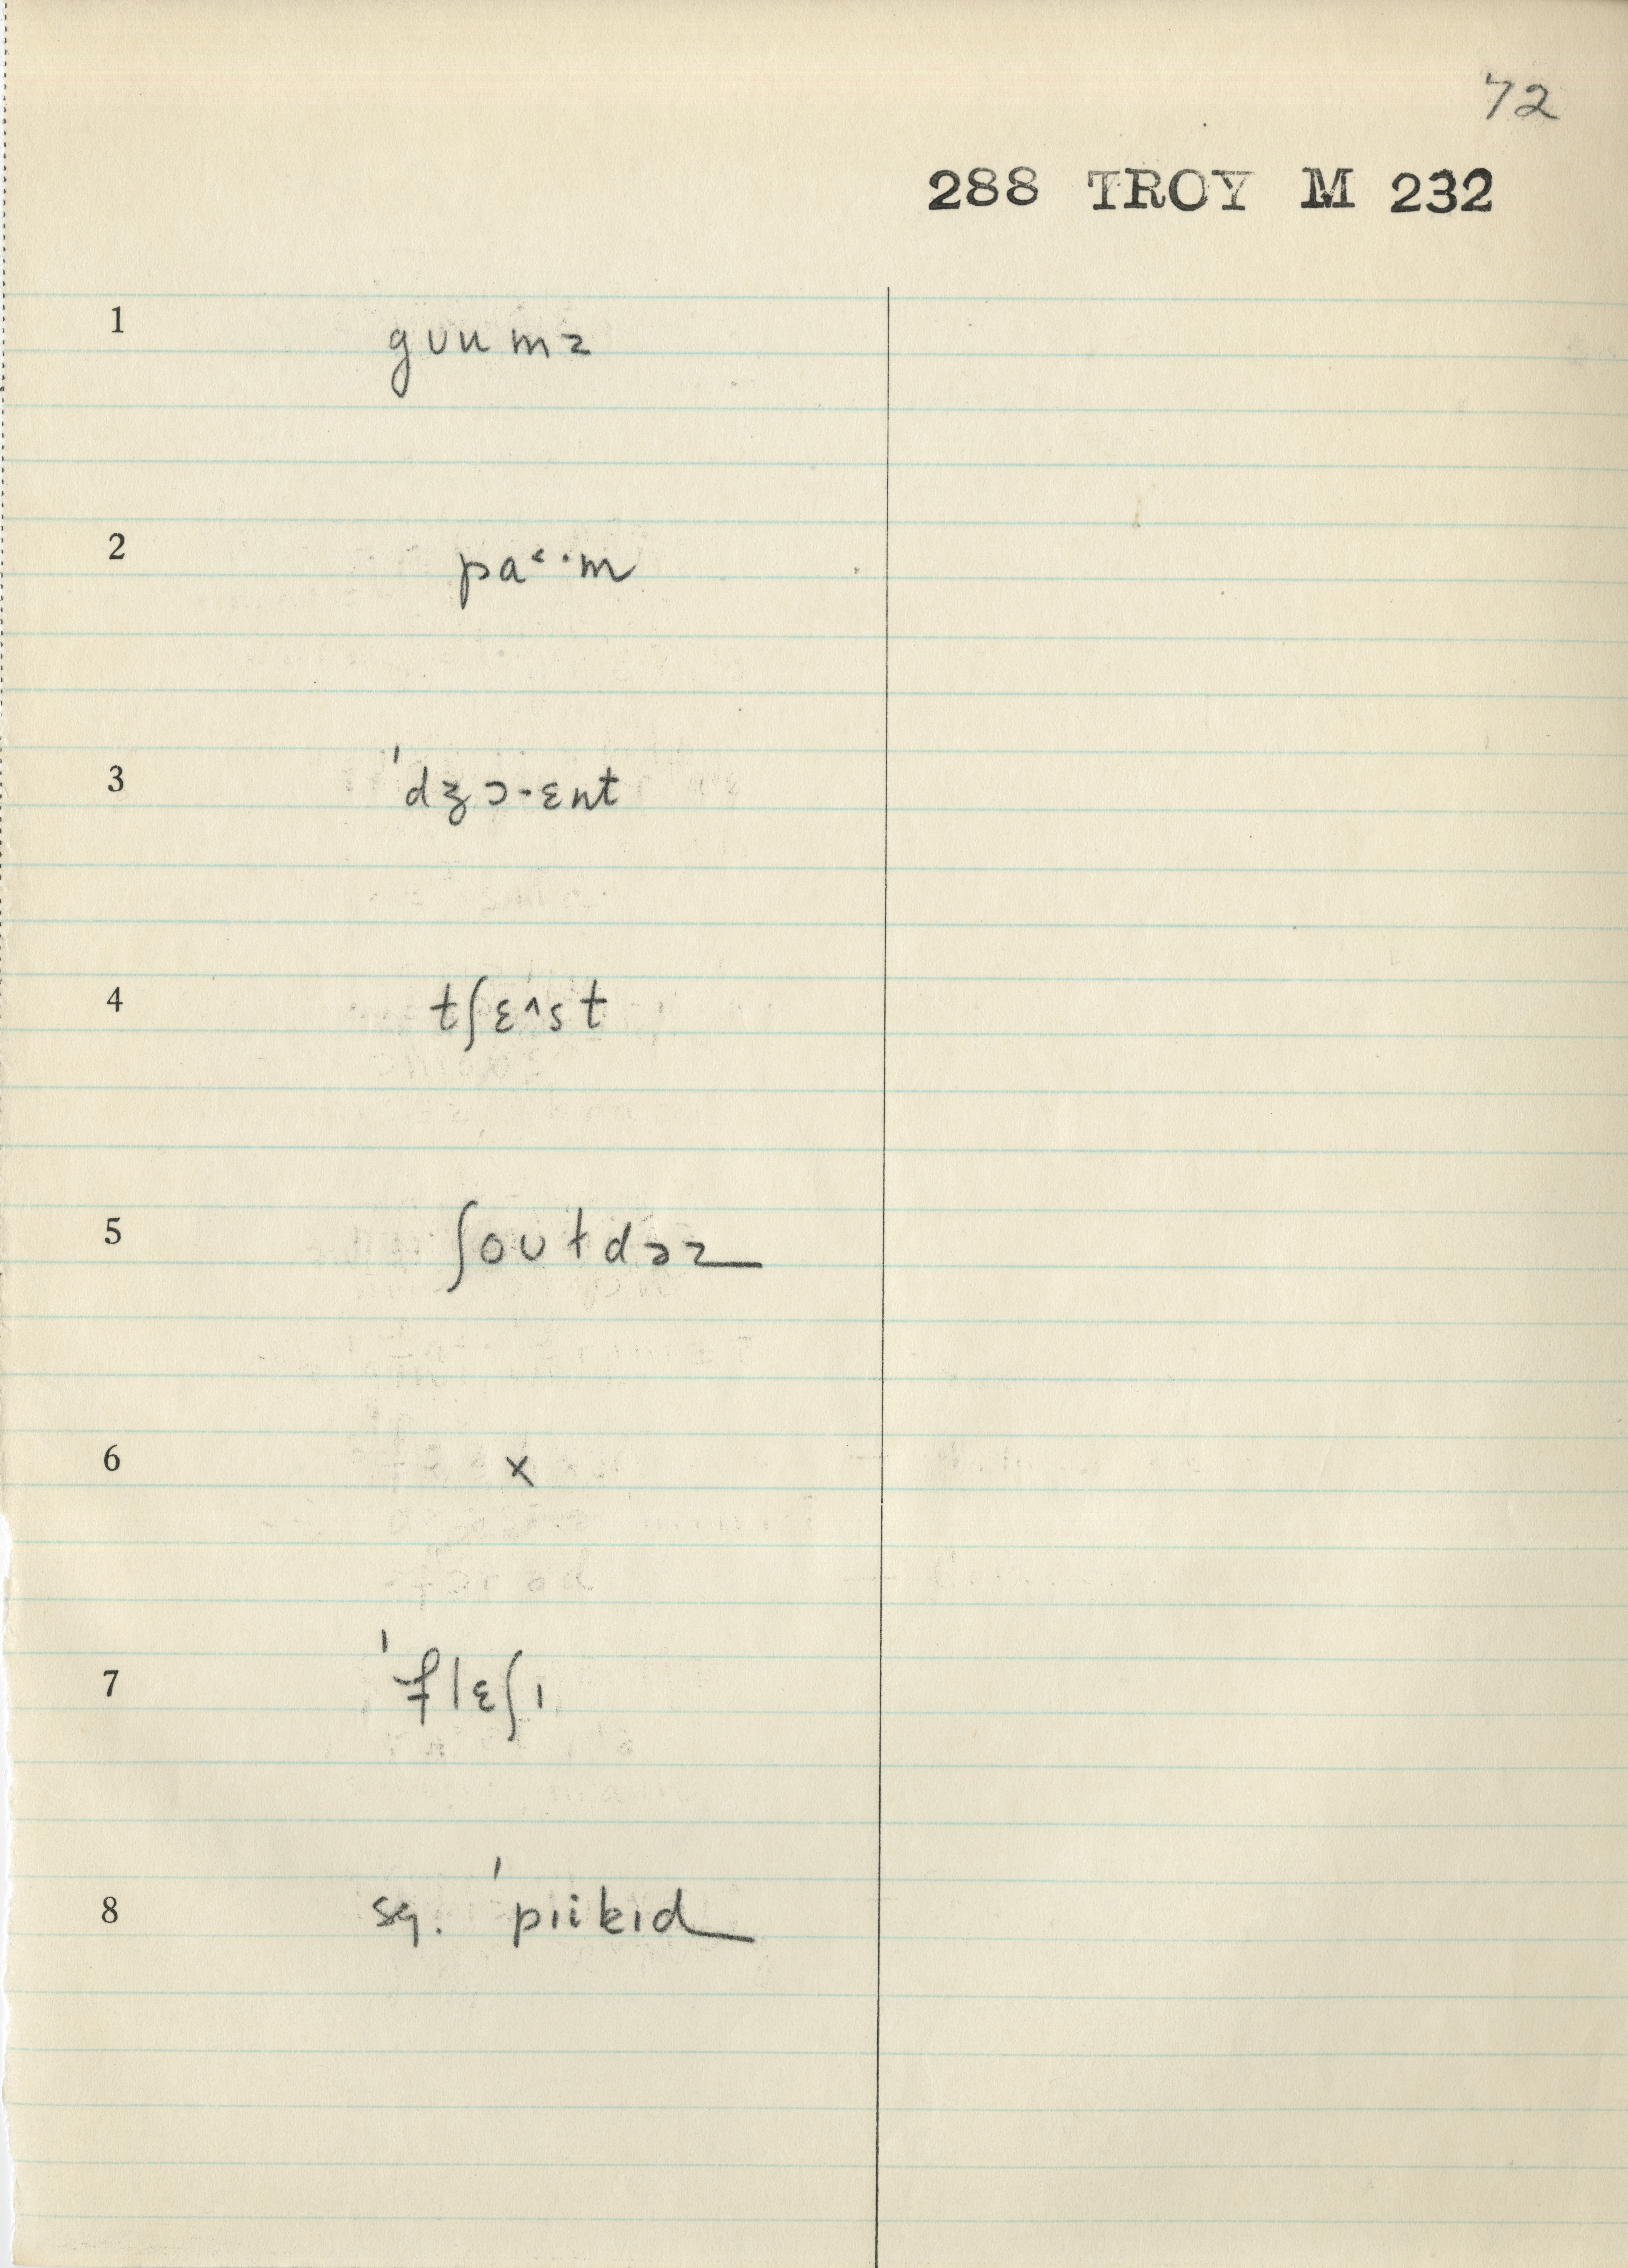 72
288 TROY M 232
1 gʊumz
2 pa˂·m
3 ˈdʒɔ·ɛnt
4 tʃɛ^st
5 ʃoʊɫdɚz
6 x
7 ˈflɛʃɪ
8 sg. ˈpɪikɪd